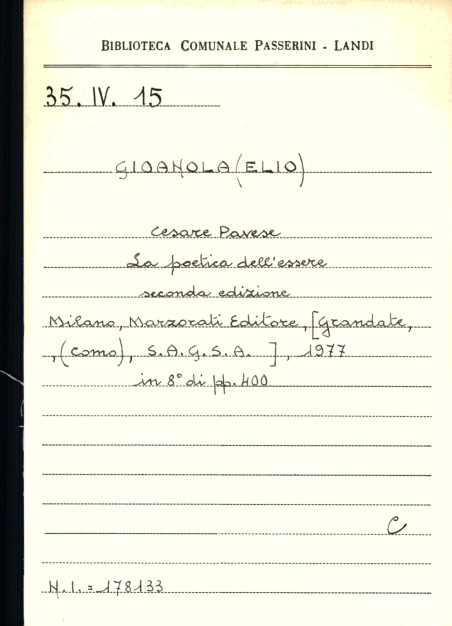 BIBLIOTECA COMUNALE PASSERINI - LANDI
35. IV. 15
GIOANOLA (ELIO)
Cesare Pavese
La poetica dell'essere
seconda edizione
Milano, Marzorati Editore, [Grandate,
, (Como), S.A.G.S.A. ], 1977
in 8° di pp. 400
C
N.I. = 178133